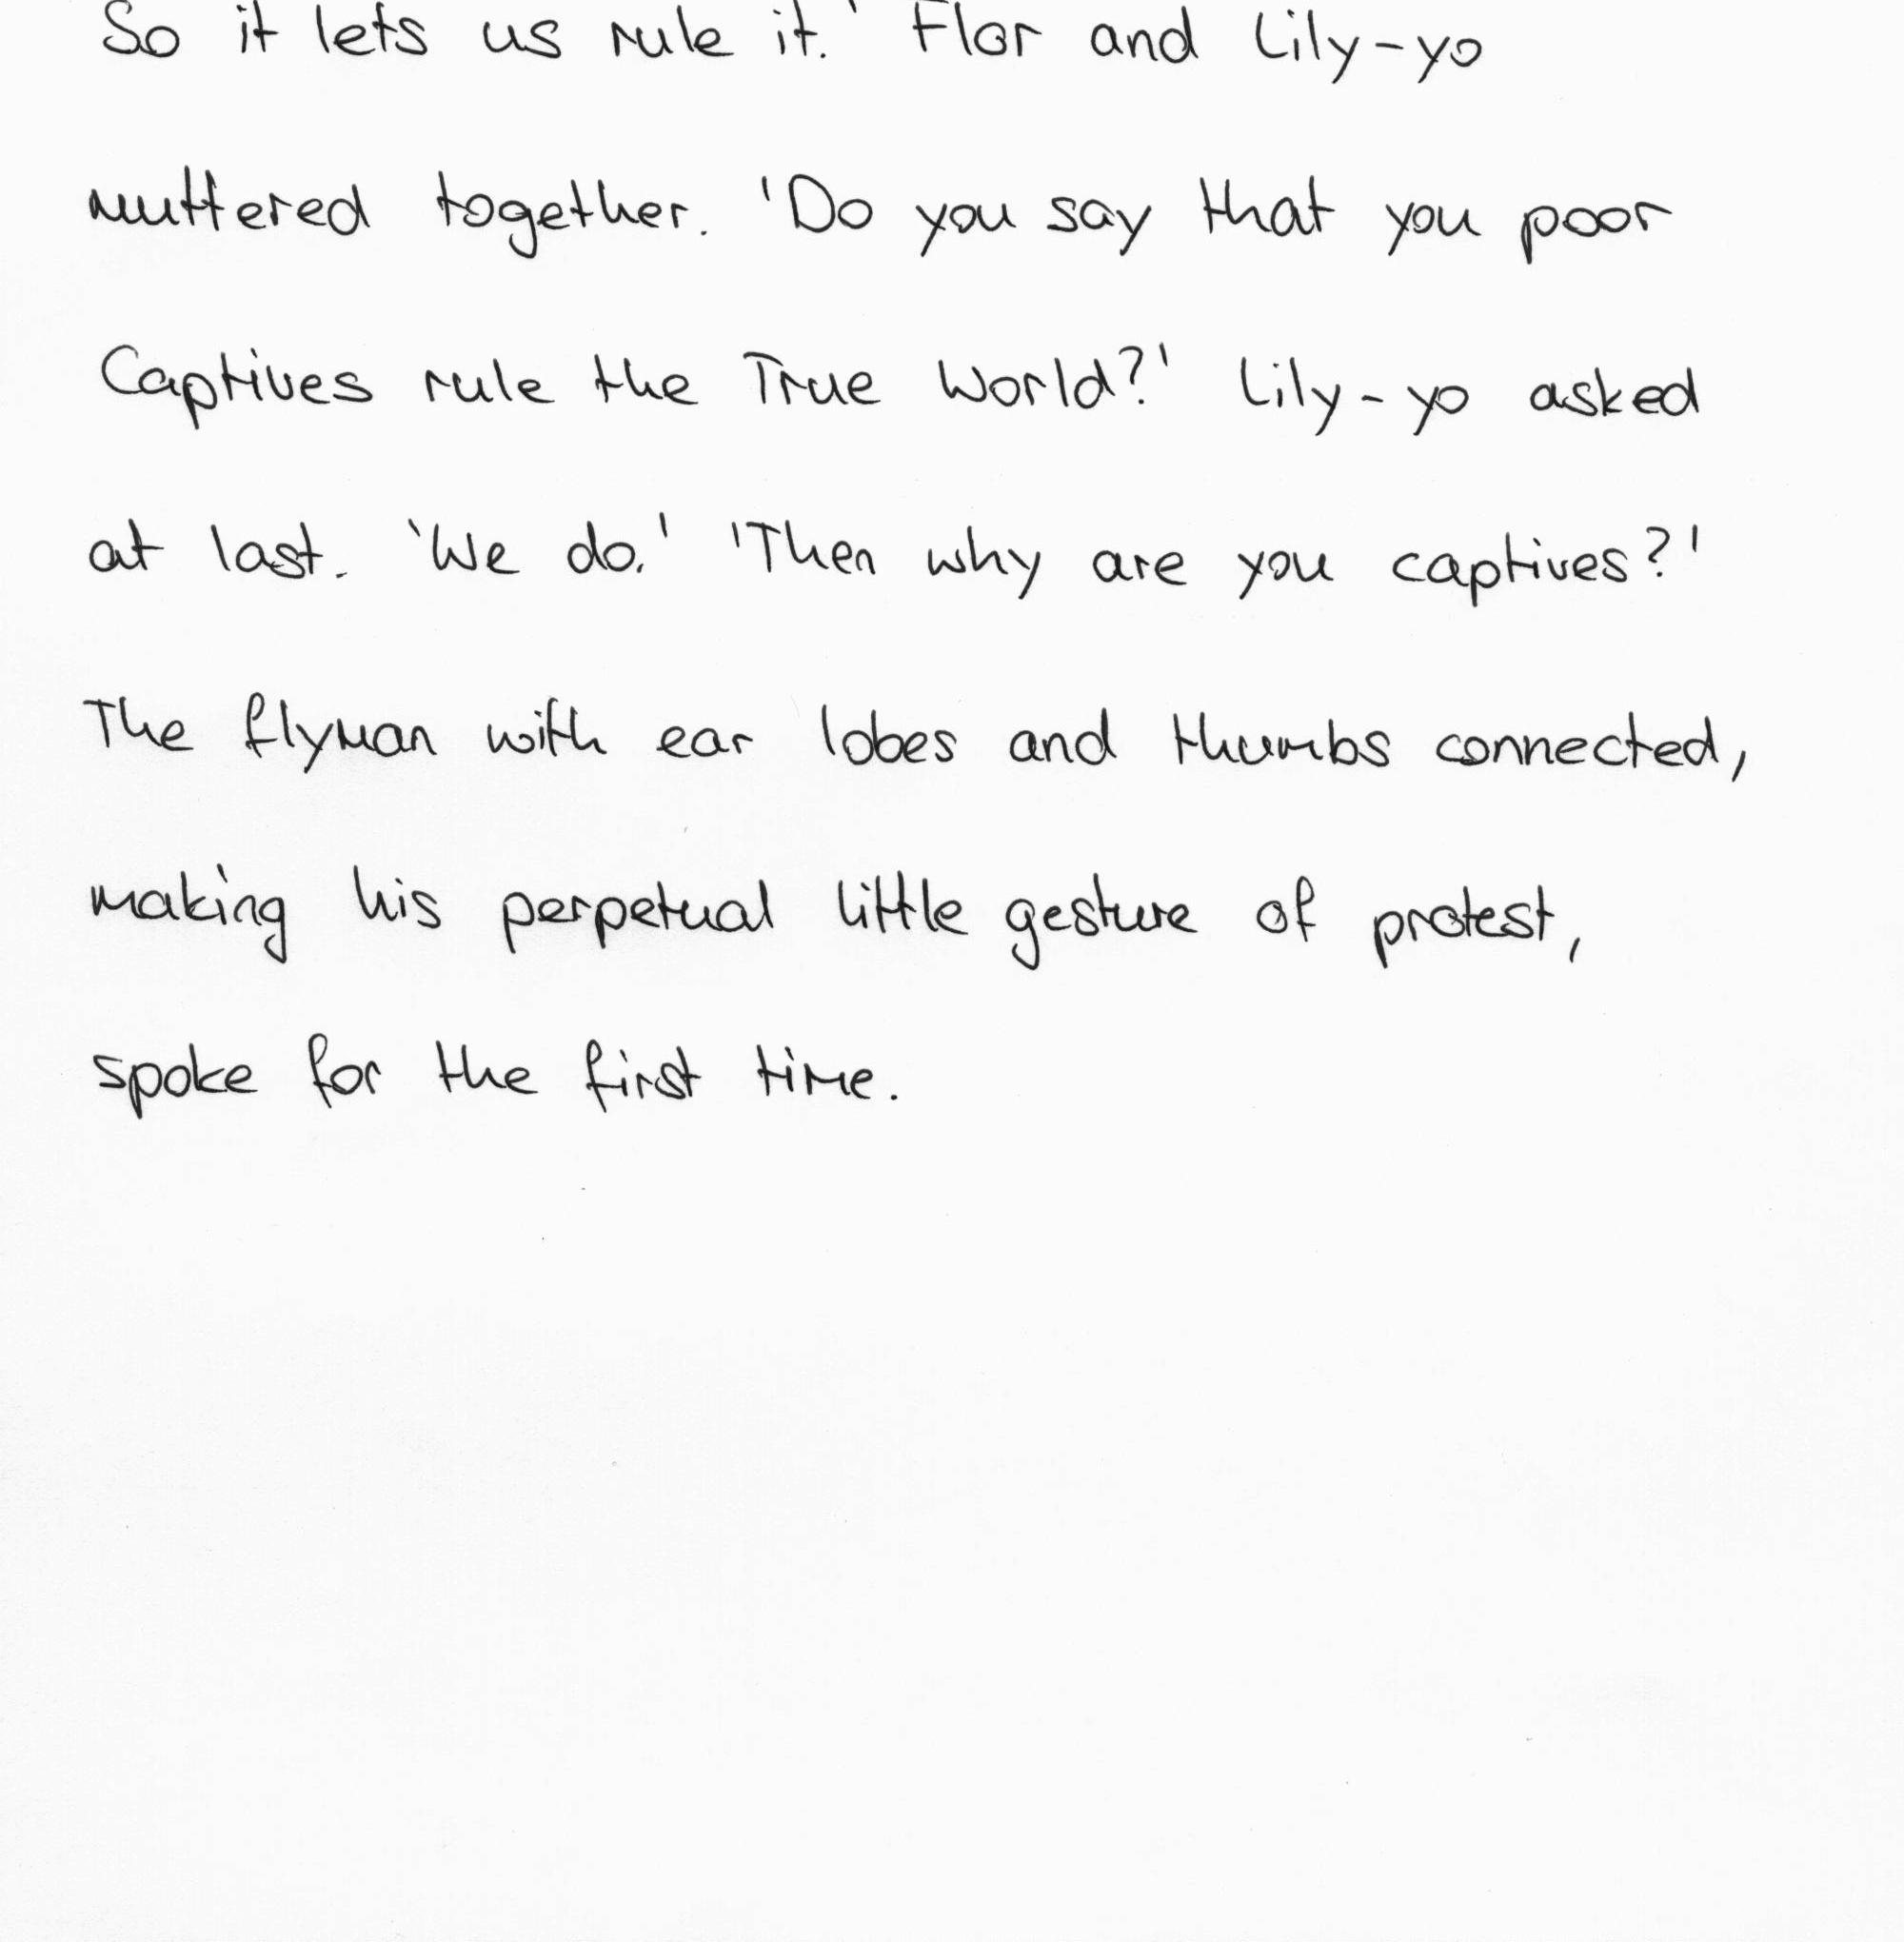 So it lets us rule it.' Flor and Lily-yo
muttered together. 'Do you say that you poor
Captives rule the True World?' Lily-yo asked
at last. 'We do.' 'Then why are you captives?'
The flyman with ear lobes and thumbs connected,
making his perpetual little gesture of protest,
spoke for the first time.